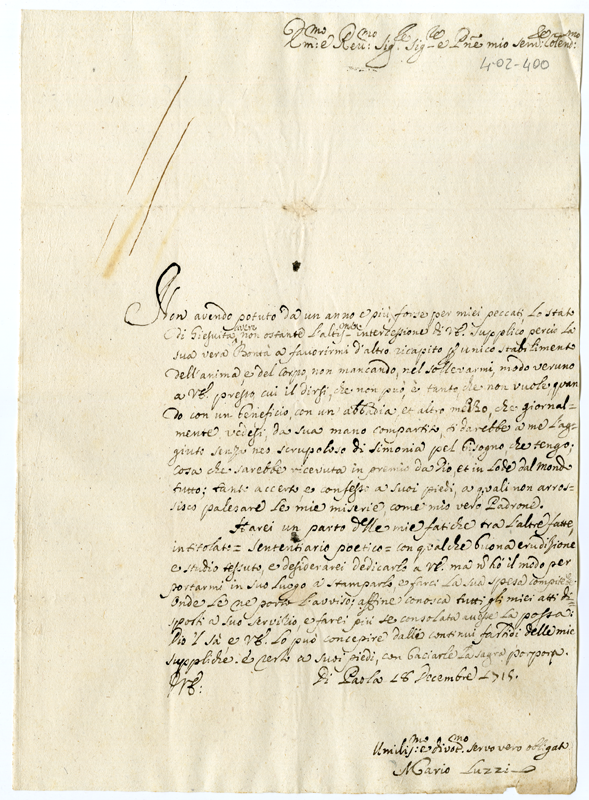 Em:º e Reu:mo Sig:re Sig:re e Pñe mio sem:e Colend:mo
402-400
Non avendo potuto da un anno e più, forse per miei peccati, lo stato
di Giesuita havere, non ostante l'altis:ma intercessione di VE. supplico perciò la
sua vera Bontà a favorirmi d'altro ricapito per unico stabilimento
dell'anima, e del corpo, non mancando, nel sollevarmi, modo veruno
a VE. presso cui il dirsi, che non può, è tanto, che non vuole, quan
do con un beneficio, con un' abbadia et altro mezzo, che giornal=
mente vedesi, da sua mano compartito, si darebbe a me l'ag=
giuto senza neo scrupoloso di simonia pel bisogno, che tengo;
cosa che sarebbe ricevuta in premio da Dio, et in lode dal mondo
tutto; tanto accerto, e confesso a suoi piedi, a quali non arros=
sisco palesare le mie miserie, come mio vero Padrone.
Harei un parto delle mie fatiche tra l'altre fatte,
intitolato = Sententiario poetico = con qualche buona erudizione
e studio tessuto, e desiderarei dedicarlo a VE. ma n'hò il modo per
portarmi in suo luogo a stamparlo, e farci la sua spesa
Onde le ne porto l'avviso; affine conosca tutti gli miei atti di=
sposti a suo servizio e farei più se consolata avesse la possa:
Dio 'l sà e VE. lo può concepire dalle continui delle mie
suppliche: e resto a suoi piedi, con baciarle la sagra porpora.
VE:
Di Paola 18 Decembre 1715.
Umilis:mo e divot:mo servo vero obligat:
Mario Luzzi